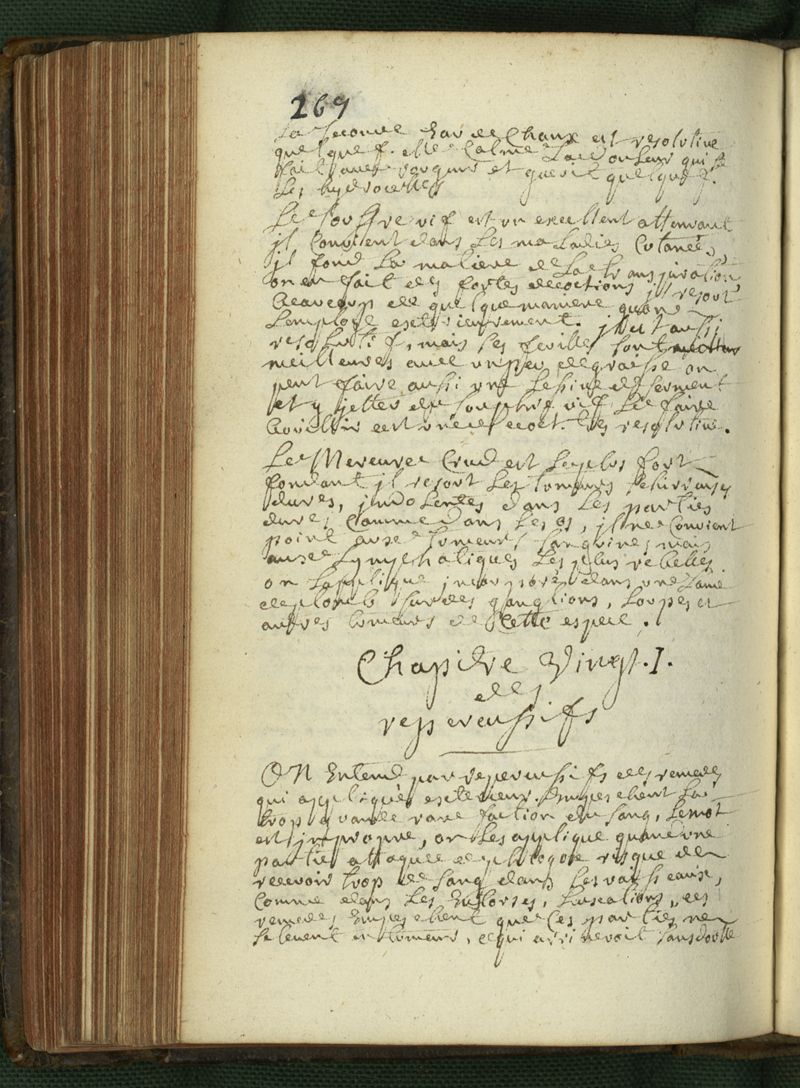 269
La seconde Eau de Chaux est resolutive
quelque f. elle Calme La douleur qui
fait et guerit quelque f.
Les hydrocelles
Le souffre vif est un excellent attenuant
jl Convient dans Les maladies Cutanées,
jl fond La matiere de La transpiration
on en fait des fortes decoctions jl resout
beaucoup de quelque maniere quon
Lemploye exterieurement. jl est aussi
resolutif, mais ses feuilles sont
meilleures avec un peu de graisse on
peut faire aussi une Lessive de serment
et y jetter du souphre vif Le faire
bouillir cest une decoct. tres resolutive.
Le Mercure Crud est Le plus fort
fondant jl resout Les tumeurs schirreuses
dures, jndolentes dans Les parties
dures, Comme dans Les os, jl ne Convient
point aux tumeurs sanguines mais
aux Lymphatiques Les plus rebelles
on Lapplique jncorporé dans une Lame
de plomb sur des ganglions, Loupes et
autres tumeurs de Cette espece.
Chapitre Vingt.I.
des
repercussifs
ON Entend par repercussifs des remedes
qui appliqués exterieur. Empechent La
trop grande rarefaction du sang, Le mot
est jmpropre, on Les applique quand une
partie attaquée de phlogose risque de
recevoir trop de sang dans Les vaisseaux,
Comme dans Les Entorses, Luxations, ces
remedes Empechent que Ces parties ne
se Levent en tumeurs, ce qui arriveroit sans doutte